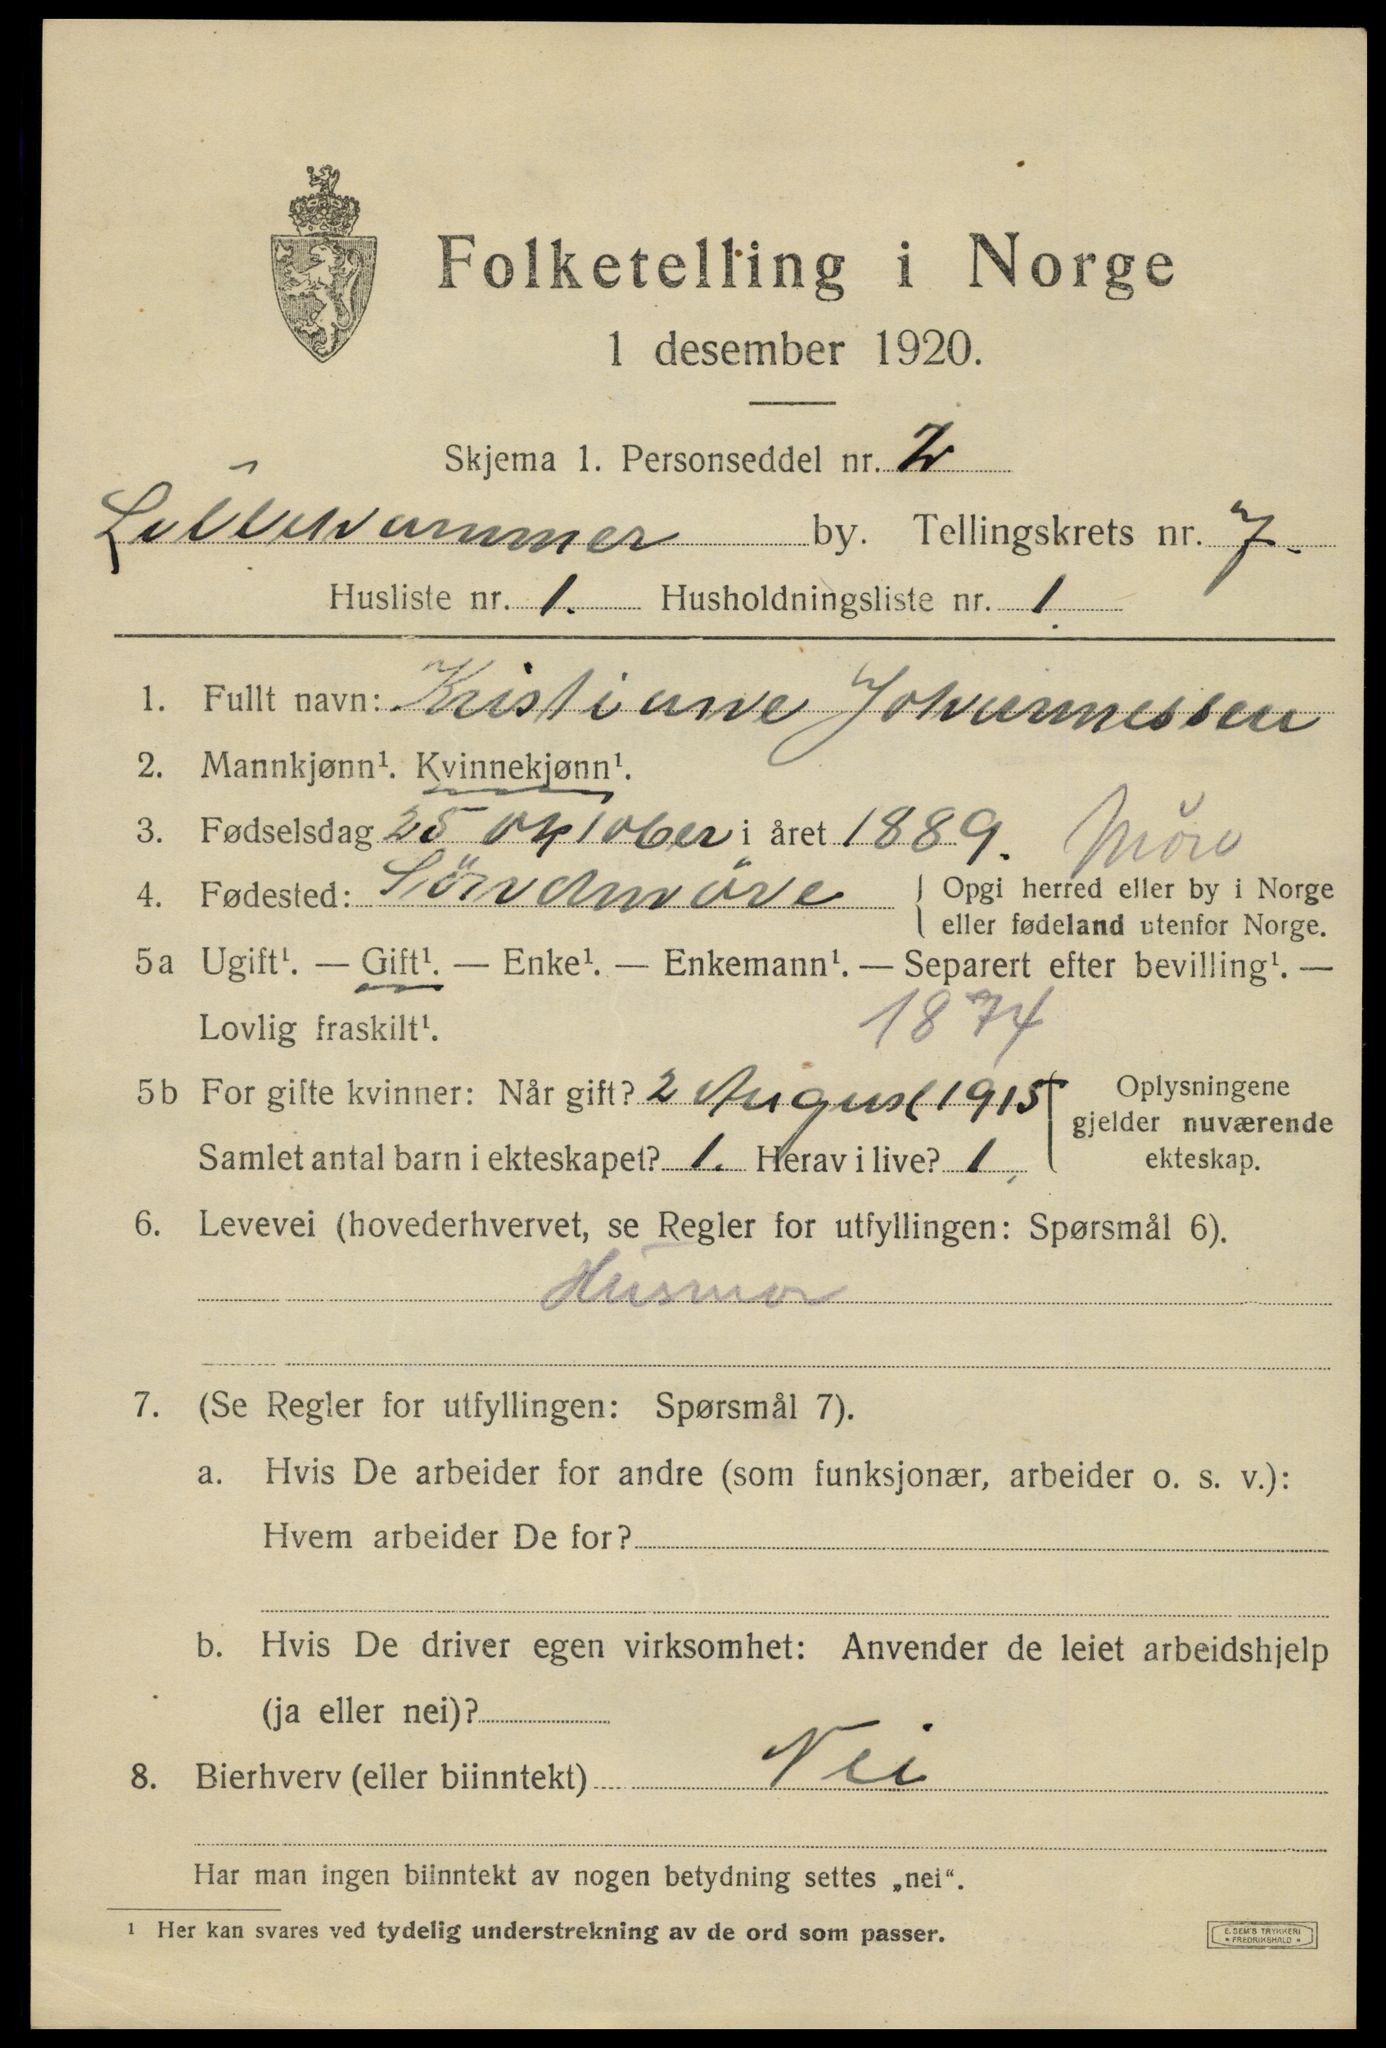 Folketelling i Norge
1 desember 1920.
Skjema 1. Personseddel nr. 2
Lillehammer by. Tellingskrets nr. 7.
Husliste nr. 1. Husholdningsliste nr. 1
1. Fullt navn: Kristiane Johannessen
2. Mannkjønn¹. Kvinnekjønn¹.
3. Fødselsdag 25 oktober i året 1889. Möre
4. Fødested: Söndmöre { Opgi herred eller by i Norge
eller fødeland utenfor Norge.
5a Ugift¹. — Gift¹. — Enke¹. — Enkemann¹. — Separert efter bevilling¹. —
Lovlig fraskilt¹. 1874
5b For gifte kvinner: Når gift? 2 August 1915 Oplysningene
gjelder nuværende
Samlet antal barn i ekteskapet? 1. Herav i live? 1 ekteskap.
6. Levevei (hovederhvervet, se Regler for utfyllingen: Spørsmål 6).
Husmor
7. (Se Regler for utfyllingen: Spørsmål 7).
a. Hvis De arbeider for andre (som funksjonær, arbeider o. s. v.):
Hvem arbeider De for?
b. Hvis De driver egen virksomhet: Anvender de leiet arbeidshjelp
(ja eller nei)?
8. Bierhverv (eller biinntekt) Nei
Har man ingen biinntekt av nogen betydning settes „nei“.
¹ Her kan svares ved tydelig understrekning av de ord som passer.
E. SEM'S TRYKKERI
* FREDRIKSHALD *